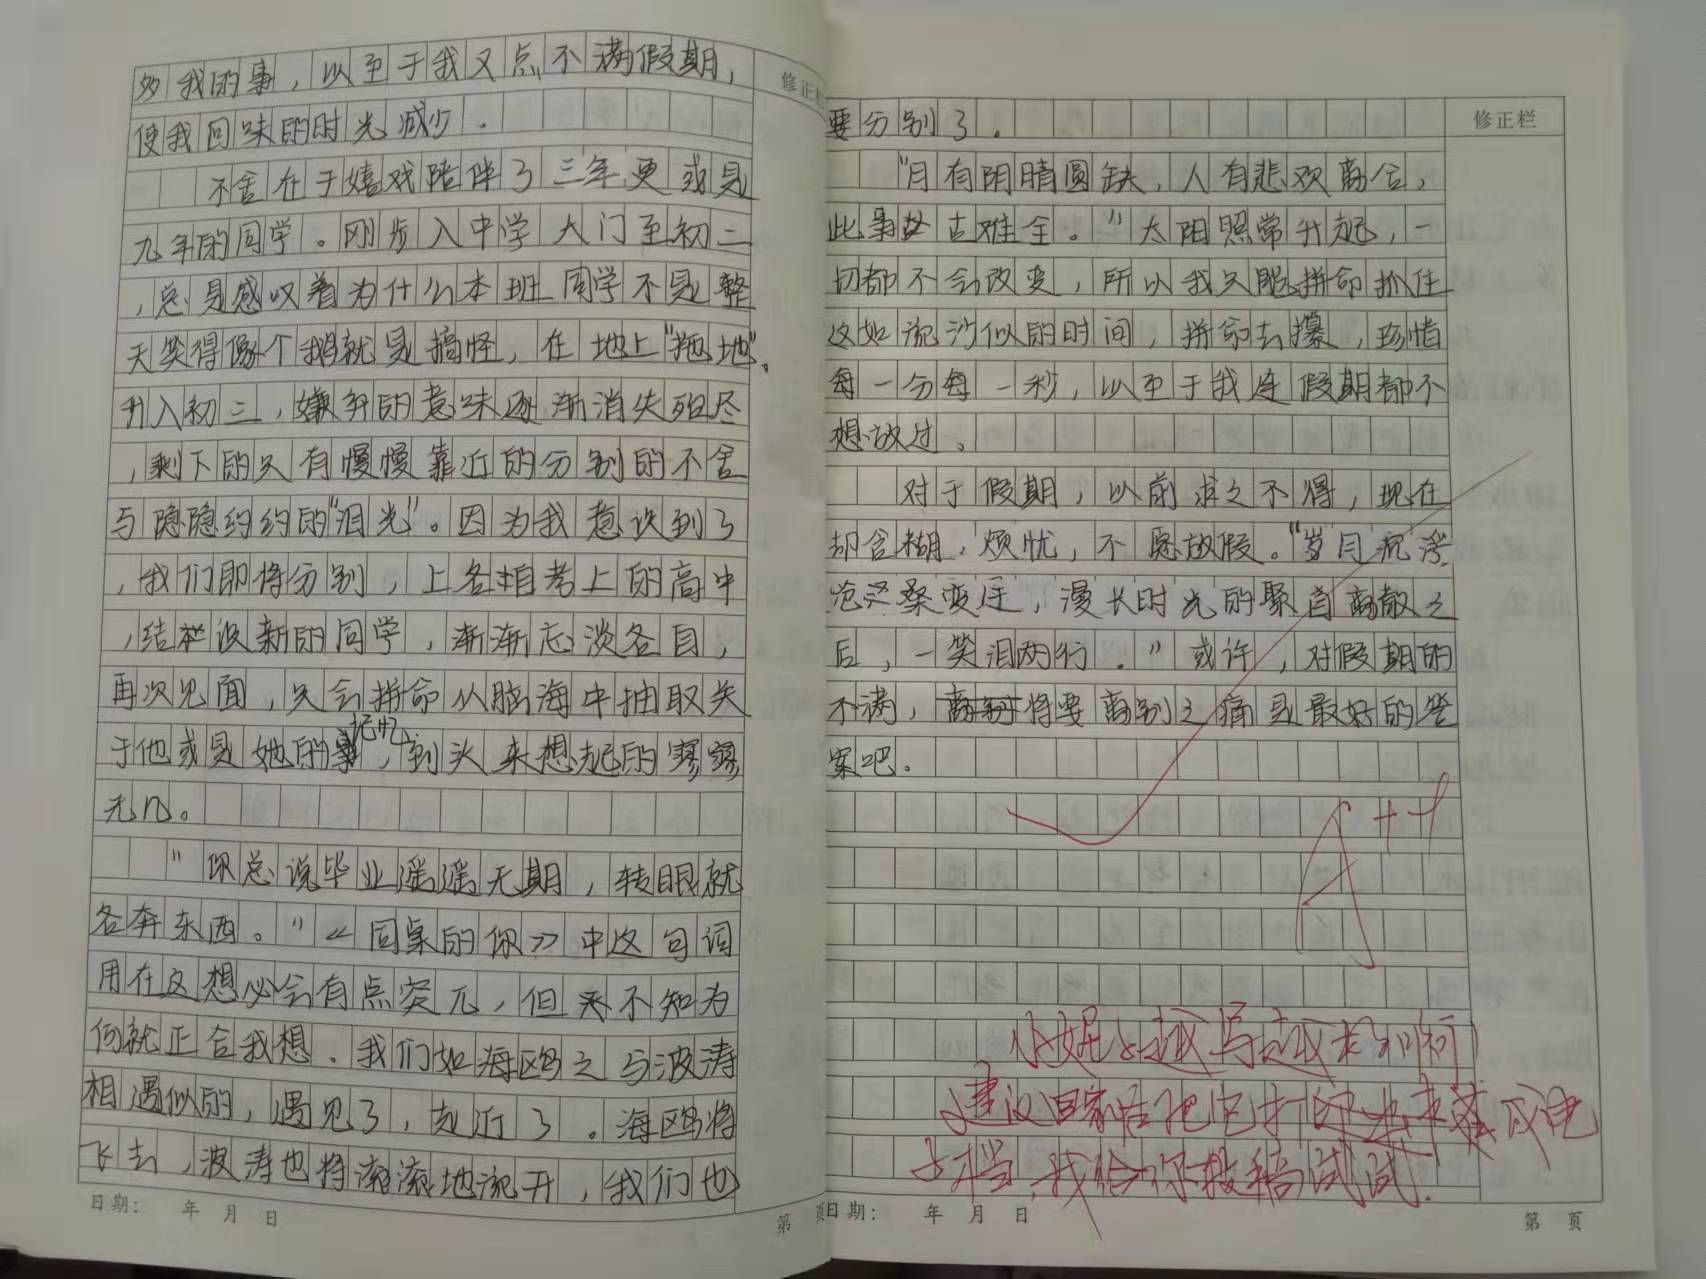 多我的事，以至于我又点不满假期，
使我回味的时光减少.
不舍在于嬉戏陪伴了三年更或是
九年的同学。刚步入中学大门至初二
，总是感叹着为什么本班同学不是整
天笑得像个鹅就是搞怪，在地上"拖地"。
升入初三，嫌弃的意味逐渐消失殆尽
，剩下的只有慢慢靠近的分别的不舍
与隐隐约约的"泪光"。因为我意识到了
，我们即将分别，上各自考上的高中
，结识新的同学，渐渐忘淡各自，
再次见面，只会拼命从脑海中抽取关
于他或是她的记忆，到头来想起的寥寥
无几。
"你总说毕业遥遥无期，转眼就
各奔东西。"《同桌的你》中这句词
用在这想必会有点突兀，但不知为
何就正合我想.我们如海鸥之与波涛
相遇似的，遇见了，走近了。海鸥将
飞去，波涛也将滚滚地流开，我们也
日期： 年 月 日
第 页
修正栏
要分别了.
"月有阴晴圆缺，人有悲欢离合，
此事古难全。"太阳照常升起，一
切都不会改变，所以我只能拼命抓住
这如流沙似的时间，拼命去攥，珍惜
每一分每一秒，以至于我连假期都不
想放过。
对于假期，以前求之不得，现在
却含糊，烦忧，不愿放假。"岁月沉浮
沧桑变迁，漫长时光的聚首离散之
后，一笑泪两行."或许，对假期的
不满，将要离别之痛是最好的答
案吧.
A++
小妮越写越来劲
建议回家后把它打印出来存成电
子档，我给你投稿试试.
日期： 年 月 日
第 页
修正栏